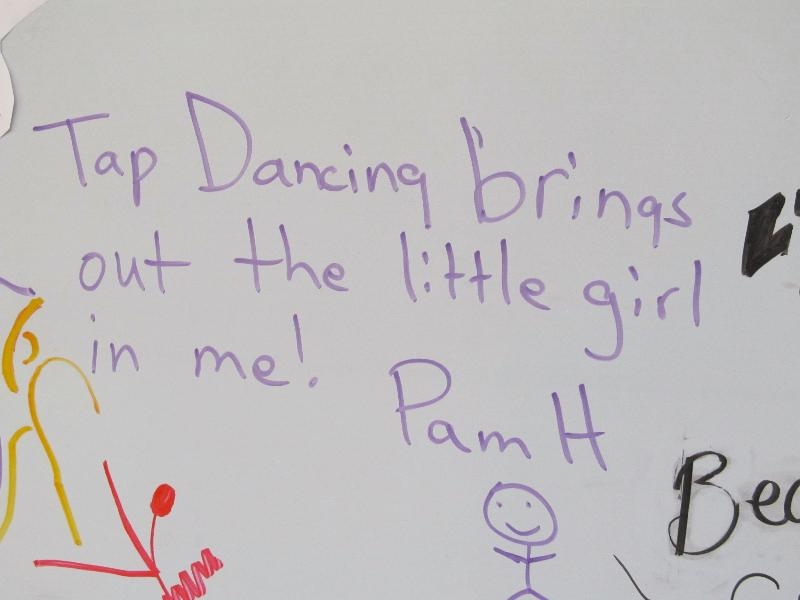 Tap Dancing brings
out the little girl
in me!
Pam H